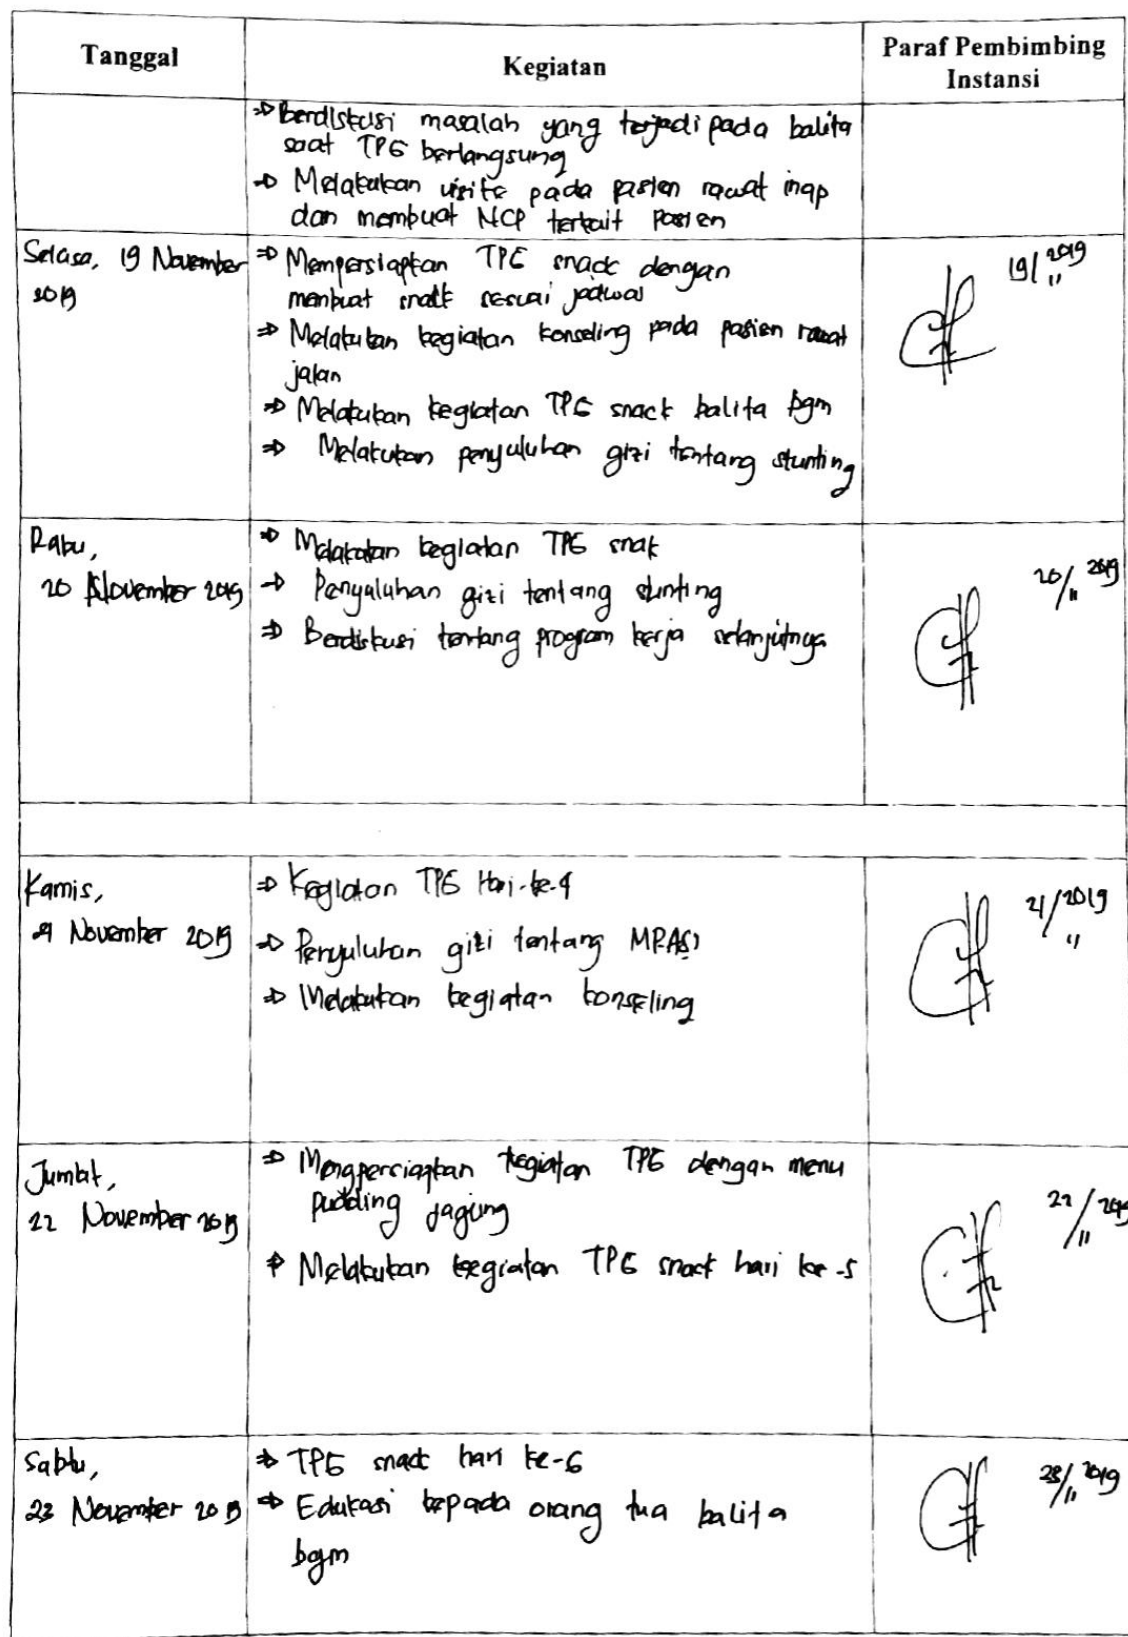 Tanggal
Kegiatan
Paraf Pembimbing
Instansi
⇒ Berdiskusi masalah yang terjadi pada balita
saat TPG berlangsung
⇒ Melakukan visite pada pasien rawat inap
dan membuat NCP terkait pasien
Selasa, 19 November
2019
⇒ Mempersiapkan TPG snack dengan
membuat snack sesuai jadwal
⇒ Melakukan kegiatan konseling pada pasien rawat
jalan
⇒ Melakukan kegiatan TPG snack balita bgm
⇒ Melakukan penyuluhan gizi tentang stunting
19/2019
11
Rabu,
20 November 2019
⇒ Melakukan kegiatan TPG snak
⇒ Penyuluhan gizi tentang stunting
⇒ Berdiskusi tentang program kerja selanjutnya
20/11 2019
Kamis,
21 November 2019
⇒ Kegiatan TPG Hari-ke-4
⇒ Penyuluhan gizi tentang MPASI
⇒ Melakukan kegiatan konseling
21/2019
11
Jumat,
22 November 2019
⇒ Mempersiapkan kegiatan TPG dengan menu
pudding jagung
⇒ Melakukan kegiatan TPG snack hari ke-5
22/11 2019
Sabtu,
23 November 2019
⇒ TPG snack hari ke-6
⇒ Edukasi kepada orang tua balita
bgm
23/11 2019